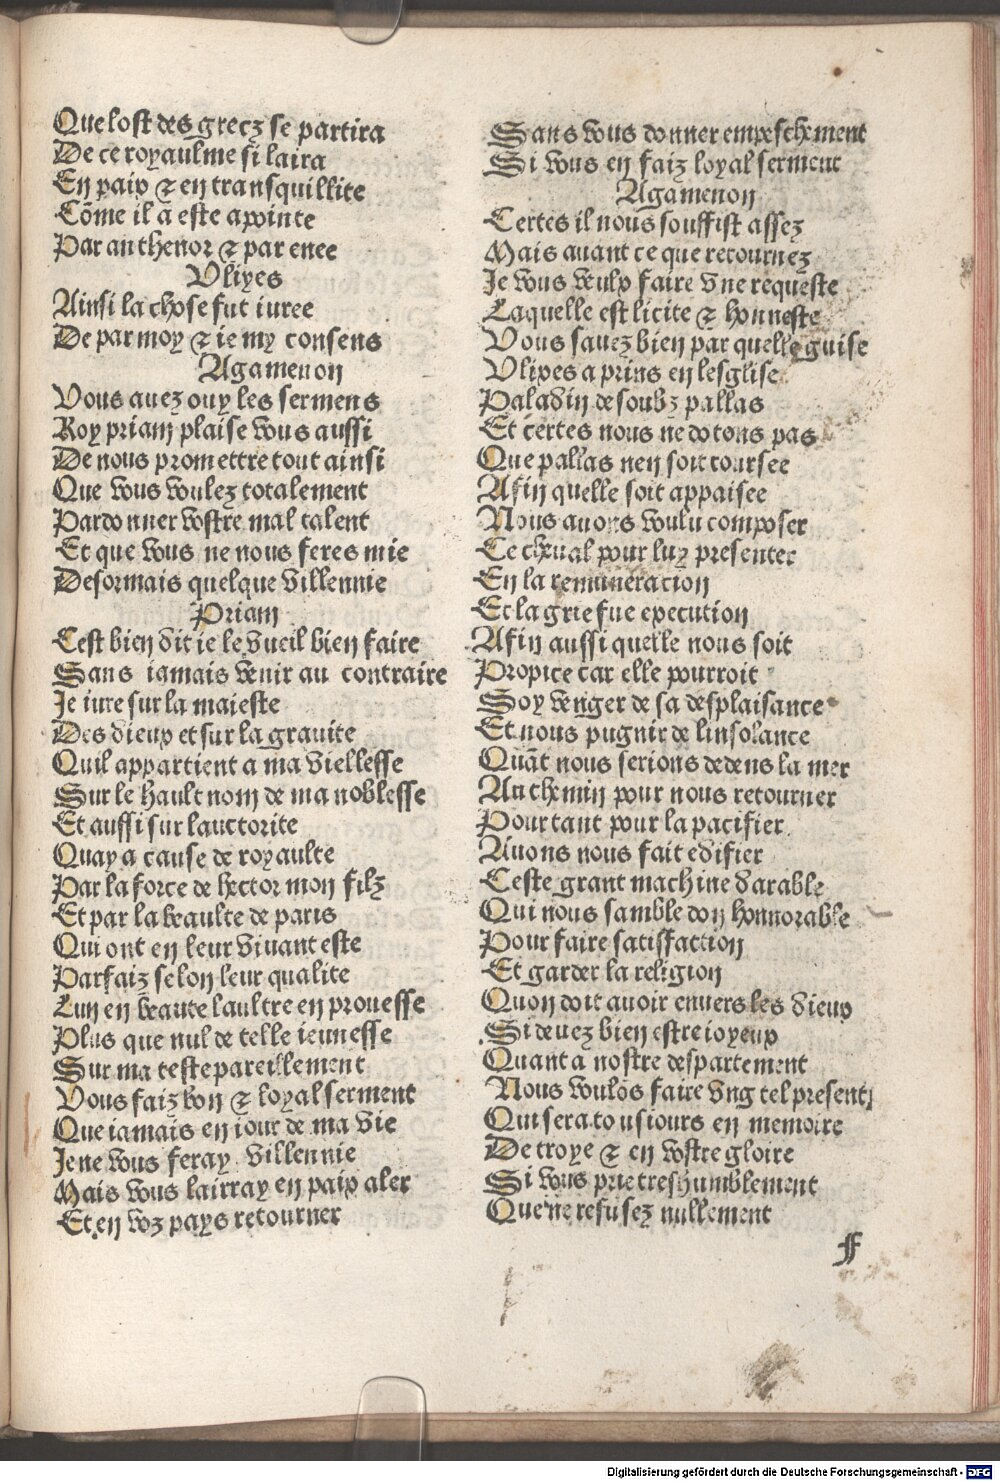 Que lost des grecz se partira
De ce royaulme si laira
En paix ⁊ en transquillite
Cõme il a este apointe
Par anthenor ⁊ par enee
Ulixes
Ainsi la chose fut iuree
De par moy ⁊ ie my consens
Agamenon
Vous auez ouy les sermens
Roy priam plaise vous aussi
De nous promettre tout ainsi
Que vous voulez totalement
Pardonner vostre mal talent
Et que vous ne nous feres mie
Desormais quelque villennie
Priam
Cest bien dit ie le vueil bien faire
Sans iamais venir au contraire
Je iure sur la maieste
Des dieux et sur la grauite
Quil appartient a ma viellesse
Sur le hault nom de ma noblesse
Et aussi sur lauctorite
Quay a cause de royaulte
Par la force de hector mon filz
Et par la beaulte de paris
Qui ont en leur viuant este
Parfaiz selon leur qualite
Lun en beaute laultre en prouesse
Plus que nul de telle ieunesse
Sur ma teste pareillement
Vous faiz bon ⁊ loyal serment
Que iamais en iour de ma vie
Je ne vous feray villennie
Mais vous lairray en paix aler
Et en voz pays retourner
Sans vous donner empeschement
Si vous en faiz loyal serment
Agamenon
Certes il nous souffist assez
Mais auant ce que retournez
Je vous veulx faire vne requeste
Laquelle est licite ⁊ honneste
Vous sauez bien par quelle guise
Ulixes a prins en lesglise
Paladin de soubz pallas
Et certes nous ne dotons pas
Que pallas nen soit coursee
Afin quelle soit appaisee
Nous auons voulu composer
Ce cheual pour luy presenter
En la remuneracion
Et la griefue execution
Afin aussi quelle nous soit
Propice car elle pourroit
Soy venger de sa desplaisance
Et nous pugnir de linsolance
Quãt nous serions dedens la mer
Au chemin pour nous retourner
Pourtant pour la pacifier
Auons nous fait edifier
Ceste grant machine darable
Qui nous samble don honnorable
Pour faire satisfaction
Et garder la religion
Quon doit auoir enuers les dieux
Si deuez bien estre ioyeux
Quant a nostre despartement
Nous voulõs faire vng tel present
Qui sera tousiours en memoire
De troye ⁊ en vostre gloire
Si vous prie treshumblement
Que ne refusez nullement
ff
Digitalisierung gefördert durch die Deutsche Forschungsgemeinschaft - DFG